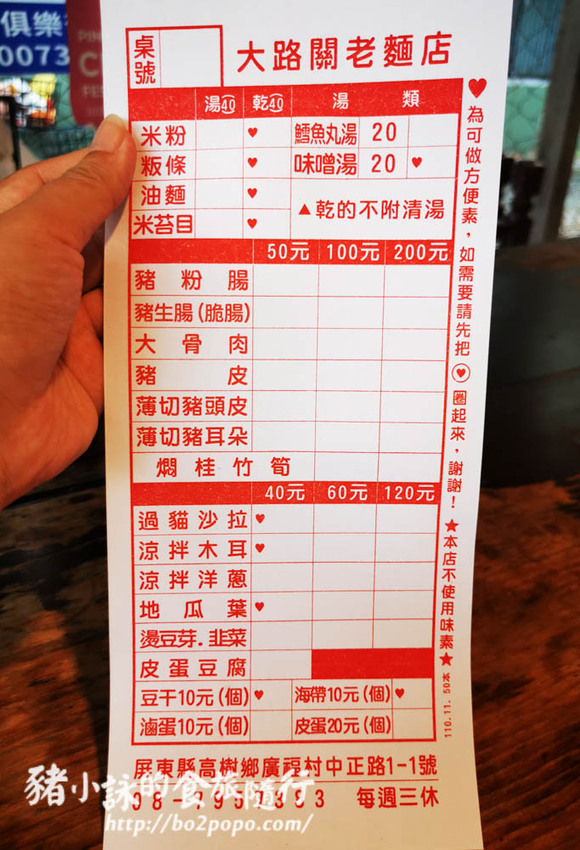 俱樂
0073
桌號
大路關老麵店
湯40 乾40 湯類
米粉 ♥ 鱈魚丸湯 20
粄條 ♥ 味噌湯 20 ♥
油麵 ♥
▲乾的不附清湯
米苔目 ♥
50元 100元 200元
豬粉腸
豬生腸(脆腸)
大骨肉
豬皮
薄切豬頭皮
薄切豬耳朵
燜桂竹筍
40元 60元 120元
過貓沙拉 ♥
涼拌木耳 ♥
涼拌洋蔥
地瓜葉 ♥
燙豆芽.韭菜
皮蛋豆腐
豆干10元(個) ♥ 海帶10元(個) ♥
滷蛋10元(個) 皮蛋20元(個)
♥為可做方便素，如需要請先把♥圈起來，謝謝！★本店不使用味素★
110.11. 50本
屏東縣高樹鄉廣福村中正路1-1號
每週三休
豬小詠的食旅隨行
http://bo2popo.com/